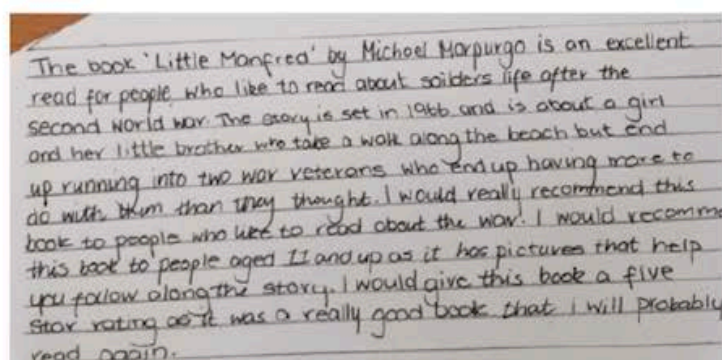 The book 'Little Manfred' by Michael Morpurgo is an excellent
read for people who like to read about soilders life after the
second world war. The story is set in 1966 and is about a girl
and her little brother who take a walk along the beach but end
up running into two war veterans who end up having more to
do with them than they thought. I would really recommend this
book to people who like to read about the war. I would recomm
this book to people aged 11 and up as it has pictures that help
you follow along the story. I would give this book a five
star rating as it was a really good book that I will probably
read again.